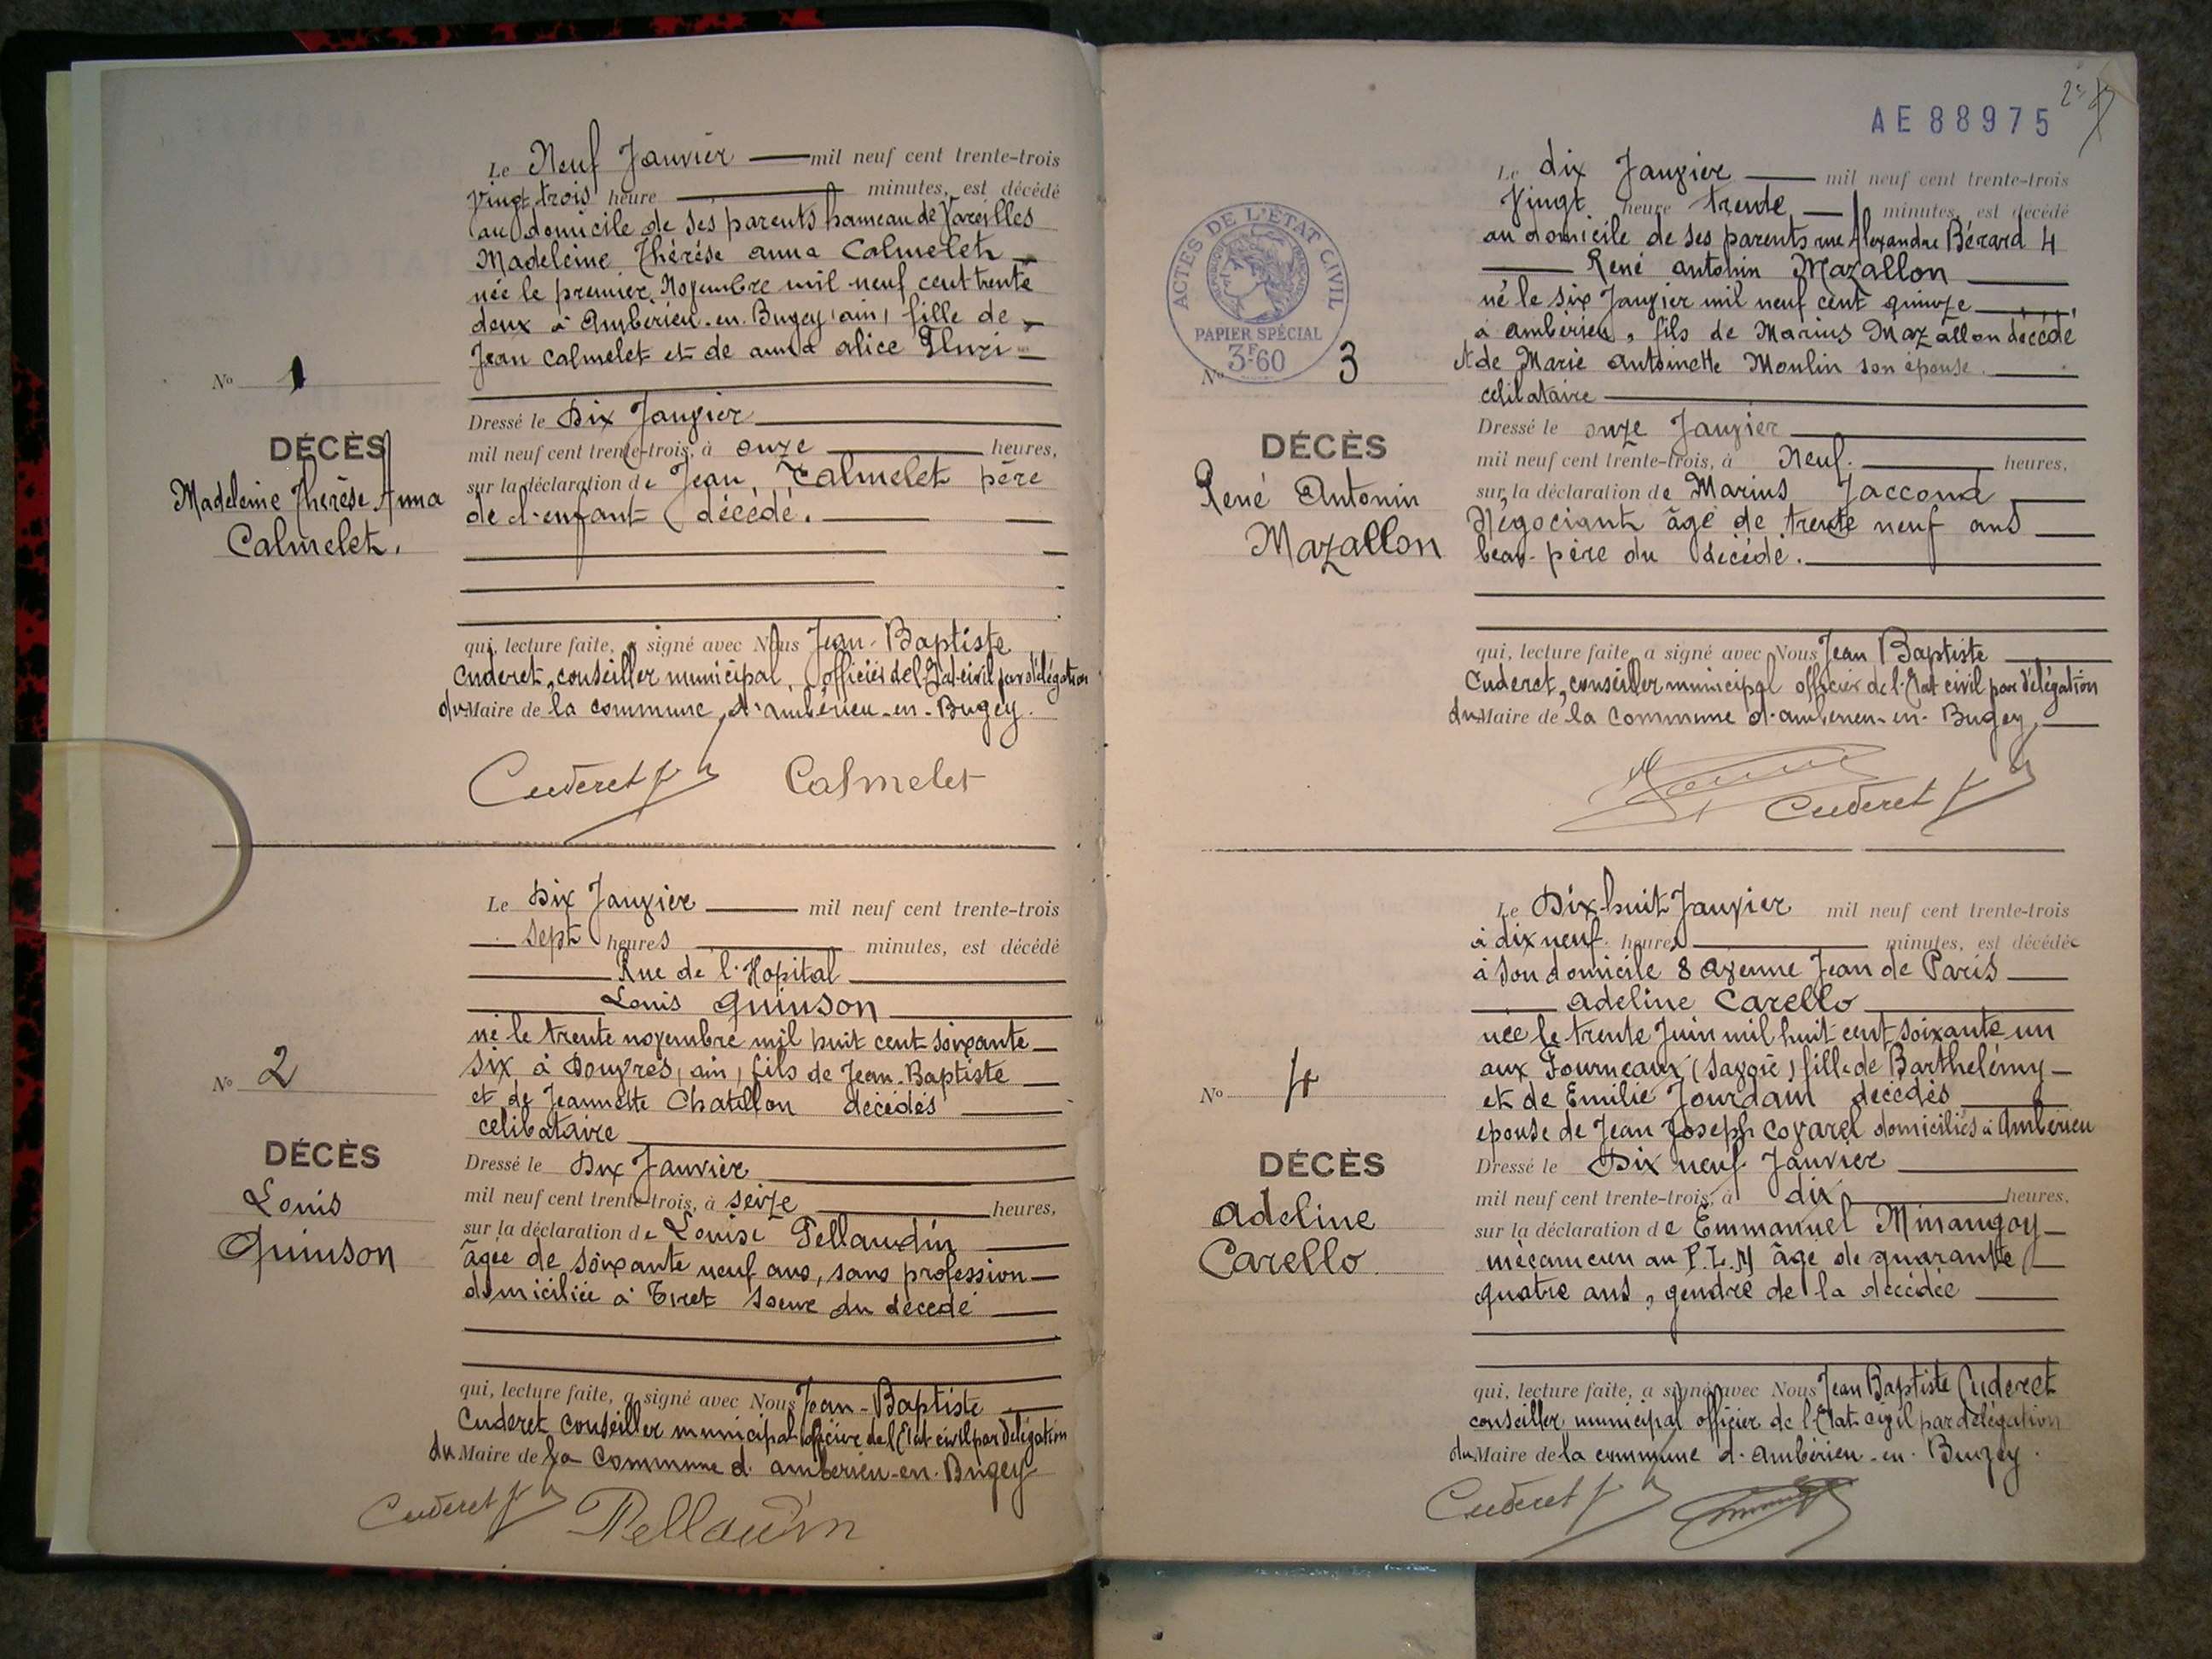 Le Neuf Janvier mil neuf cent trente-trois
Vingt trois heure minutes, est décédé
au domicile de ses parents hameau de Vareilles
Madeleine Thérèse anna Calmelet
née le premier Novembre mil neuf cent trente
deux à Ambérieu-en-Bugey (ain) fille de
Jean Calmelet et de anna alice
Nº 1
DÉCÈS
Madeleine Thérèse Anna
Calmelet.
Dressé le Dix Janvier
mil neuf cent trente-trois, à onze heures,
sur la déclaration de Jean, Calmelet père
de l'enfant décédé.
qui, lecture faite, a signé avec Nous Jean-Baptiste
Cuderet, conseiller municipal, officier de l'Etat-civil par délégation
du Maire de la commune d'ambérieu-en-Bugey.
Cuderet Calmelet
Le Dix Janvier mil neuf cent trente-trois
sept heures minutes, est décédé
Rue de l'Hopital
Louis Quinson
né le trente novembre mil huit cent soixante
six à Douvres, ain, fils de Jean-Baptiste
et de Jeannette Chatillon décédés
célibataire
Nº 2
DÉCÈS
Louis
Quinson
Dressé le Dix Janvier
mil neuf cent trente-trois, à seize heures,
sur la déclaration de Louise Pellaudin
âgée de soixante neuf ans, sans profession
domiciliée à Tiret soeur du décédé
qui, lecture faite, a signé avec Nous Jean-Baptiste
Cuderet conseiller municipal officier de l'Etat civil par délégation
du Maire de la Commune d'ambérieu-en-Bugey
Cuderet Pellaudin
2e
AE88975
Le dix Janvier mil neuf cent trente-trois
Vingt heure trente minutes, est décédé
au domicile de ses parents rue Alexandre Bérard 4
René antonin Mazallon
né le six Janvier mil neuf cent quinze
à ambérieu, fils de Marius Mazallon décédé
et de Marie Antoinette Moulin son épouse.
célibataire
ACTES DE L'ÉTAT CIVIL
RÉPUBLIQUE FRANÇAISE
PAPIER SPÉCIAL
3F60
Nº 3
DÉCÈS
René Antonin
Mazallon
Dressé le onze Janvier
mil neuf cent trente-trois, à Neuf heures,
sur la déclaration de Marius Jaccoud
Négociant âgé de trente neuf ans
beau-père du décédé.
qui, lecture faite, a signé avec Nous Jean Baptiste
Cuderet, conseiller municipal officier de l'Etat civil par délégation
du Maire de la Commune d'ambérieu-en-Bugey.
Cuderet
Le Dix-huit Janvier mil neuf cent trente-trois
à dix neuf heures minutes, est décédée
à son domicile 8 avenue Jean de Paris
adeline Carello
née le trente Juin mil huit cent soixante un
aux Fourneaux (Savoie) fille de Barthélémy
et de Emilie Jourdain décédés
épouse de Jean Joseph Covarel domiciliés à Ambérieu
Nº 4
DÉCÈS
Adeline
Carello.
Dressé le Dix neuf Janvier
mil neuf cent trente-trois, à dix heures,
sur la déclaration de Emmanuel Minangoy
mécanicien au P.L.M âgé de quarante
quatre ans, gendre de la décédée
qui, lecture faite, a signé avec Nous Jean Baptiste Cuderet
conseiller municipal officier de l'Etat-civil par délégation
du Maire de la commune d'ambérieu-en-Bugey.
Cuderet